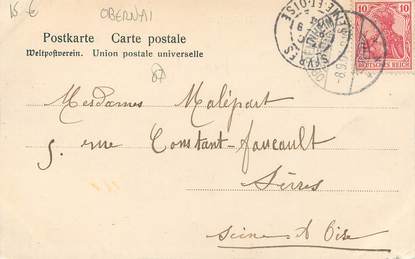 15 €
OBERNAI
Postkarte Carte postale
Weltpostverein. Union postale universelle
67
10 10
DEUTSCHES REICH
SÈVRES
SEINE-ET-OISE
Mesdames Malépart
5. rue Constant-foucault
Sèvres
Seine & Oise